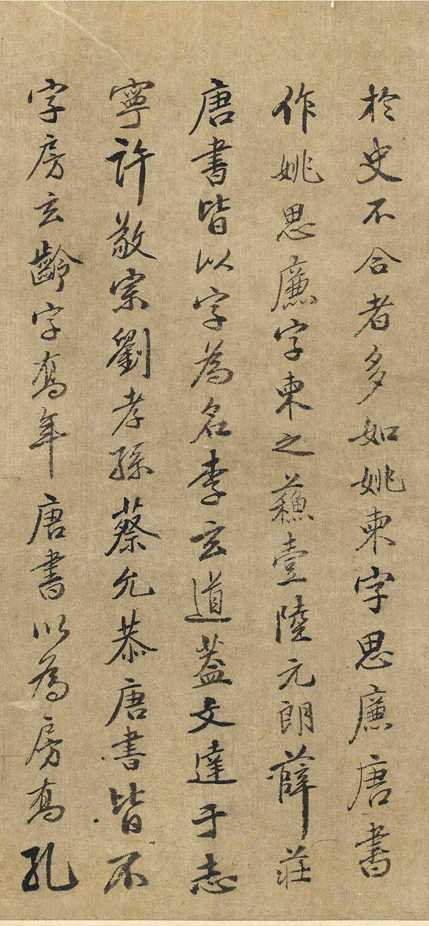 於史不合者多如姚柬字思廉唐書
作姚思廉字柬之蘓壹陸元朗薛莊
唐書皆以字為名李玄道蓋文達于志
寧許敬宗劉孝孫蔡允恭唐書皆不
字房玄齡字喬年唐書以為房喬孔